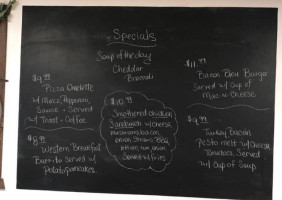 Specials
Soup of the day
Cheddar
Broccoli
$9.99
Pizza Omelette
w/ Mozz, Pepperoni,
Sauce + Served
w/ Toast + Coffee
$8.99
Western Breakfast
Burrito Served w/
Potato pancakes.
$10.99
Smothered chicken
Sandwich w/ cheese
mushrooms, bacon,
onion
Served w/ Fries
$11.99
Bacon Bleu Burger
Served w/ Cup of
Mac-n-Cheese
$9.99
Turkey Bacon
Pesto melt w/ Cheese
Tomatoes, Served
w/ Cup of Soup